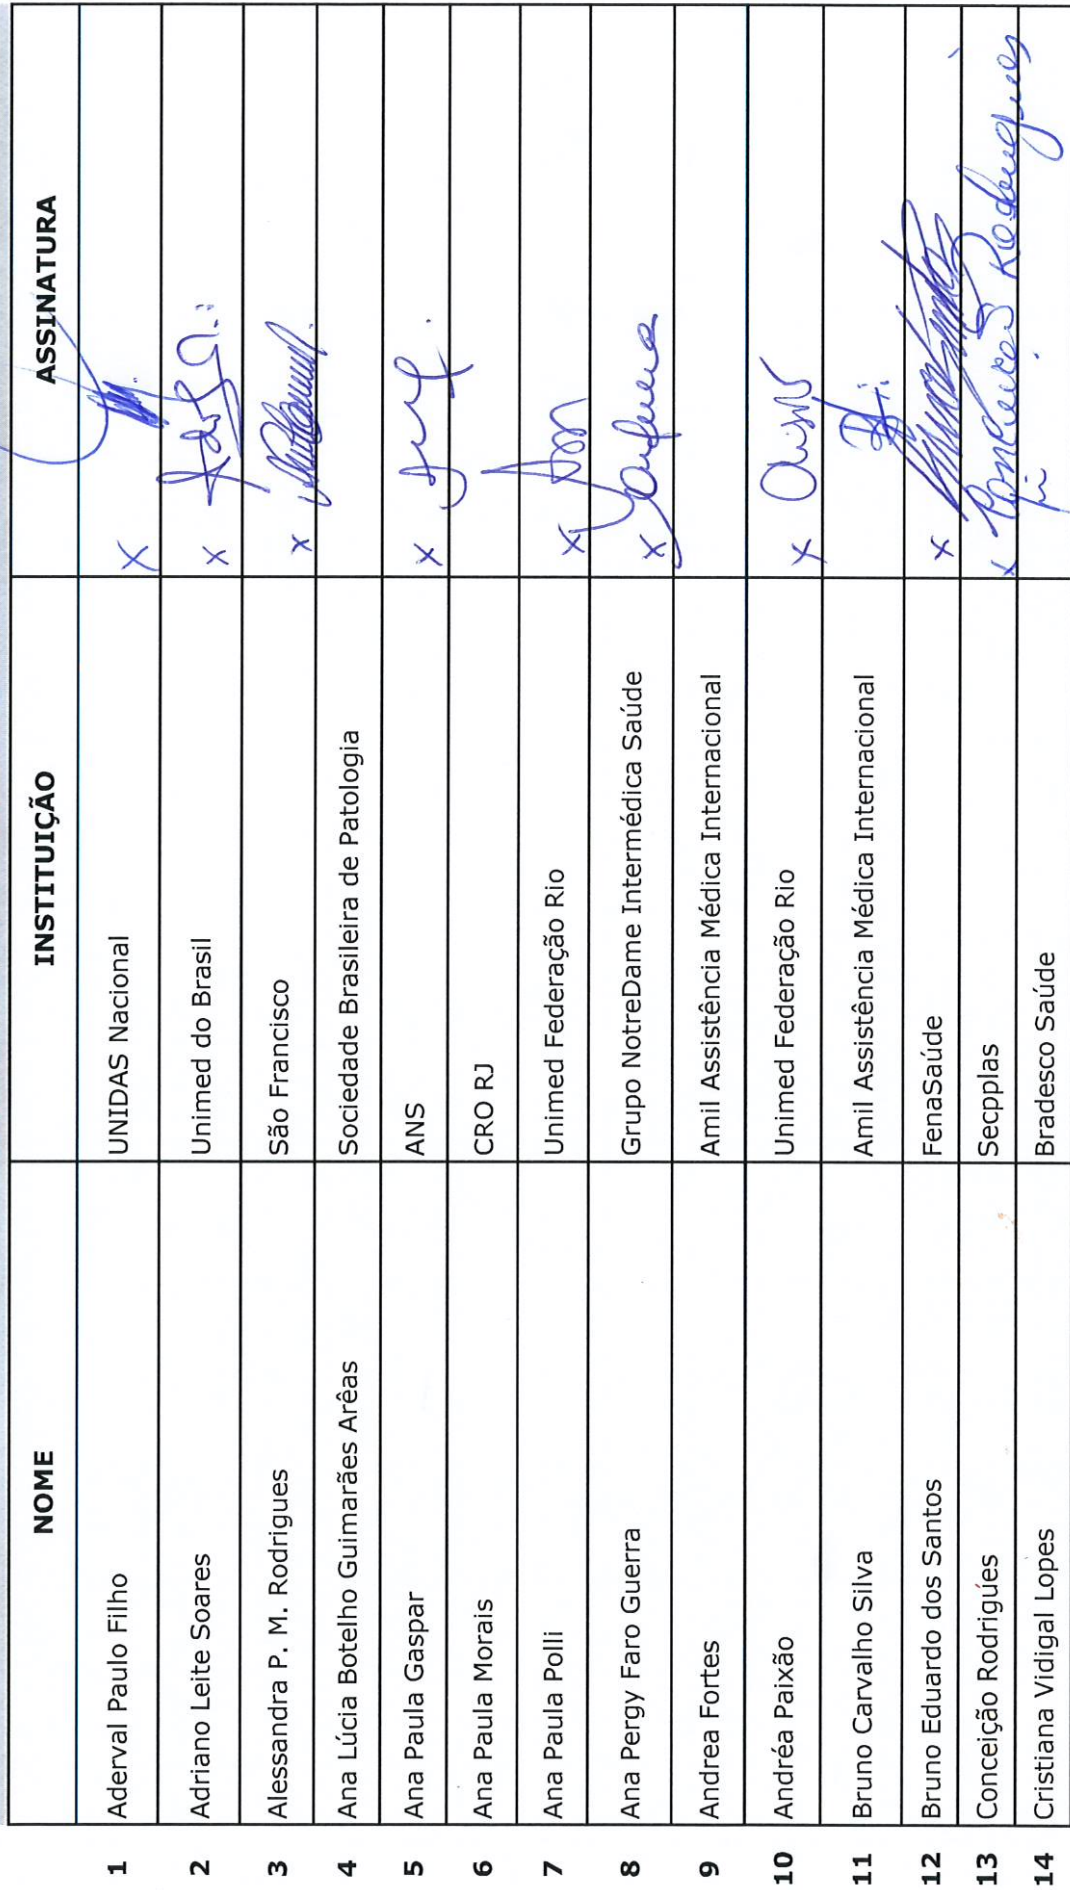 NOME INSTITUIÇÃO ASSINATURA
1 Aderval Paulo Filho UNIDAS Nacional X
2 Adriano Leite Soares Unimed do Brasil X
3 Alessandra P. M. Rodrigues São Francisco X
4 Ana Lúcia Botelho Guimarães Arêas Sociedade Brasileira de Patologia
5 Ana Paula Gaspar ANS X
6 Ana Paula Morais CRO RJ
7 Ana Paula Polli Unimed Federação Rio X
8 Ana Pergy Faro Guerra Grupo NotreDame Intermédica Saúde X
9 Andrea Fortes Amil Assistência Médica Internacional
10 Andréa Paixão Unimed Federação Rio X
11 Bruno Carvalho Silva Amil Assistência Médica Internacional
12 Bruno Eduardo dos Santos FenaSaúde X
13 Conceição Rodrigues Secpplas X Rodrigues
14 Cristiana Vidigal Lopes Bradesco Saúde